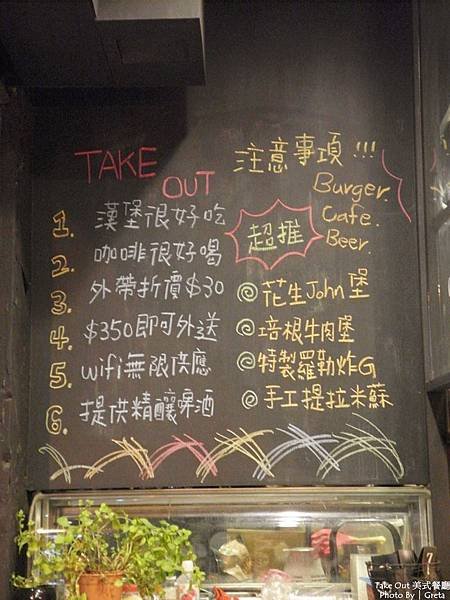 TAKE OUT
注意事項!!!
Burger.
Cafe.
Beer.
1. 漢堡很好吃
2. 咖啡很好喝
3. 外帶折價$30
4. $350即可外送
5. wifi無限供應
6. 提供精釀啤酒
超推
◎花生John堡
◎培根牛肉堡
◎特製羅勒炸G
◎手工提拉米蘇
Take Out 美式餐廳
Photo By | Greta